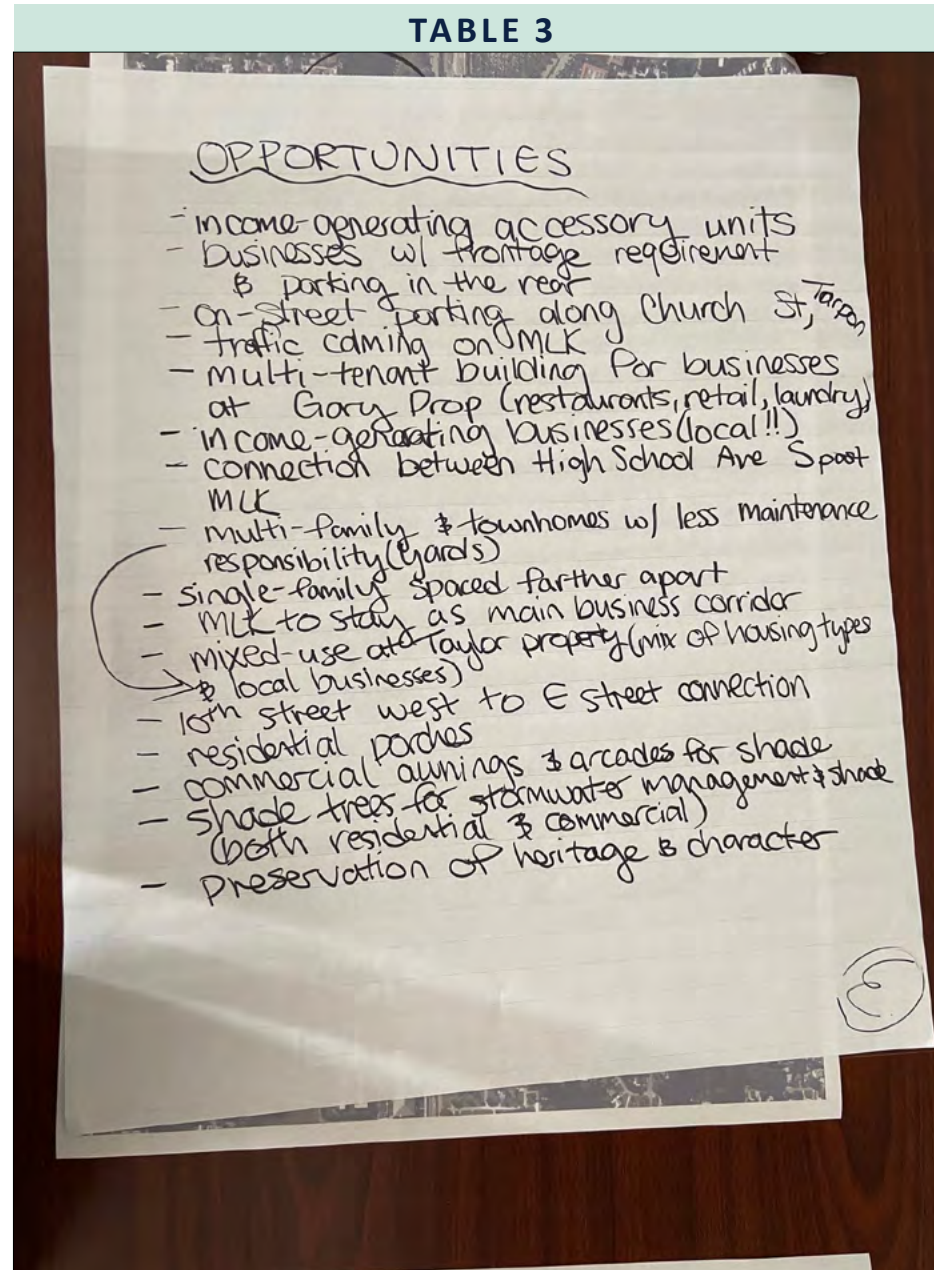 TABLE 3
OPPORTUNITIES
- income-generating accessory units
- businesses w/ frontage requirement
& parking in the rear
- on-street parking along Church St, Tarpon
- traffic calming on MLK
- multi-tenant building for businesses
at Gary Drop (restaurants, retail, laundry)
- income-generating businesses (local!!)
- connection between High School Ave S past
MLK
- multi-family & townhomes w/ less maintenance
responsibility (yards)
- single-family spaced farther apart
- MLK to stay as main business corridor
- mixed-use at Taylor property (mix of housing types
& local businesses)
- 10th street west to E street connection
- residential porches
- commercial awnings & arcades for shade
- shade trees for stormwater management & shade
(both residential & commercial)
- preservation of heritage & character